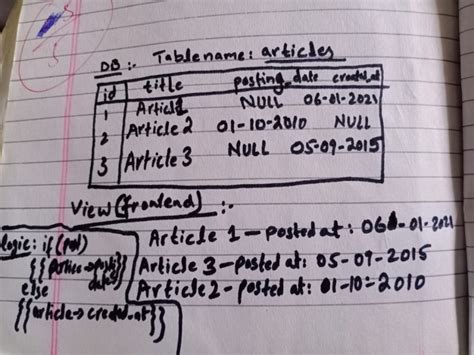 DB :- Tablename: articles
id title posting_date created_at
1 Article 1 NULL 06-01-2021
2 Article 2 01-10-2010 NULL
3 Article 3 NULL 05-09-2015
View (frontend) :-
Article 1 - posted at: 06-01-2021
Article 3 - posted at: 05-09-2015
Article 2 - posted at: 01-10-2010
logic: if (
else
{{article->created_at}}